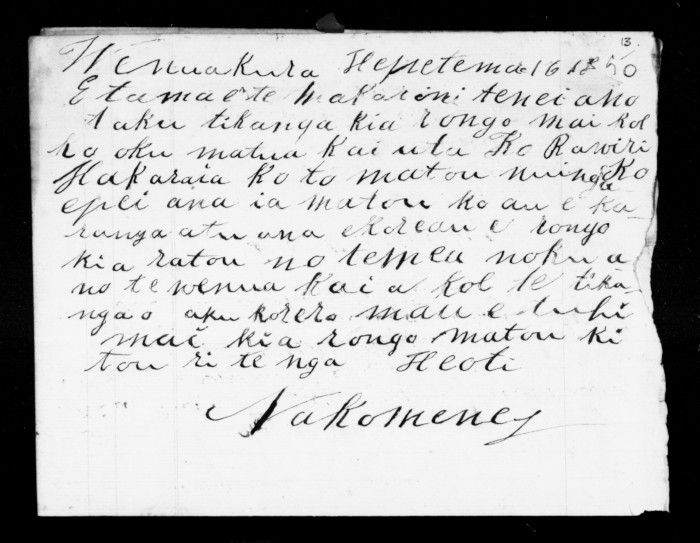 13
Wenuakura Hepetema 16 1850
E tama e te Makarini tenei ano
taku tikanga kia rongo mai koe
ko oku matua kai uta Ko Rawiri
Hakaraia ko to matou minga Ko
epei ana ia matou ko au e ka
ranga atu ana ekoreau e rongo
kia ratou no temea noku a
no te wenua kai a koe te tika
nga o aku korero mau e tuhi
mai kia rongo matou ki
tou ri te nga Heoti
Na Komene